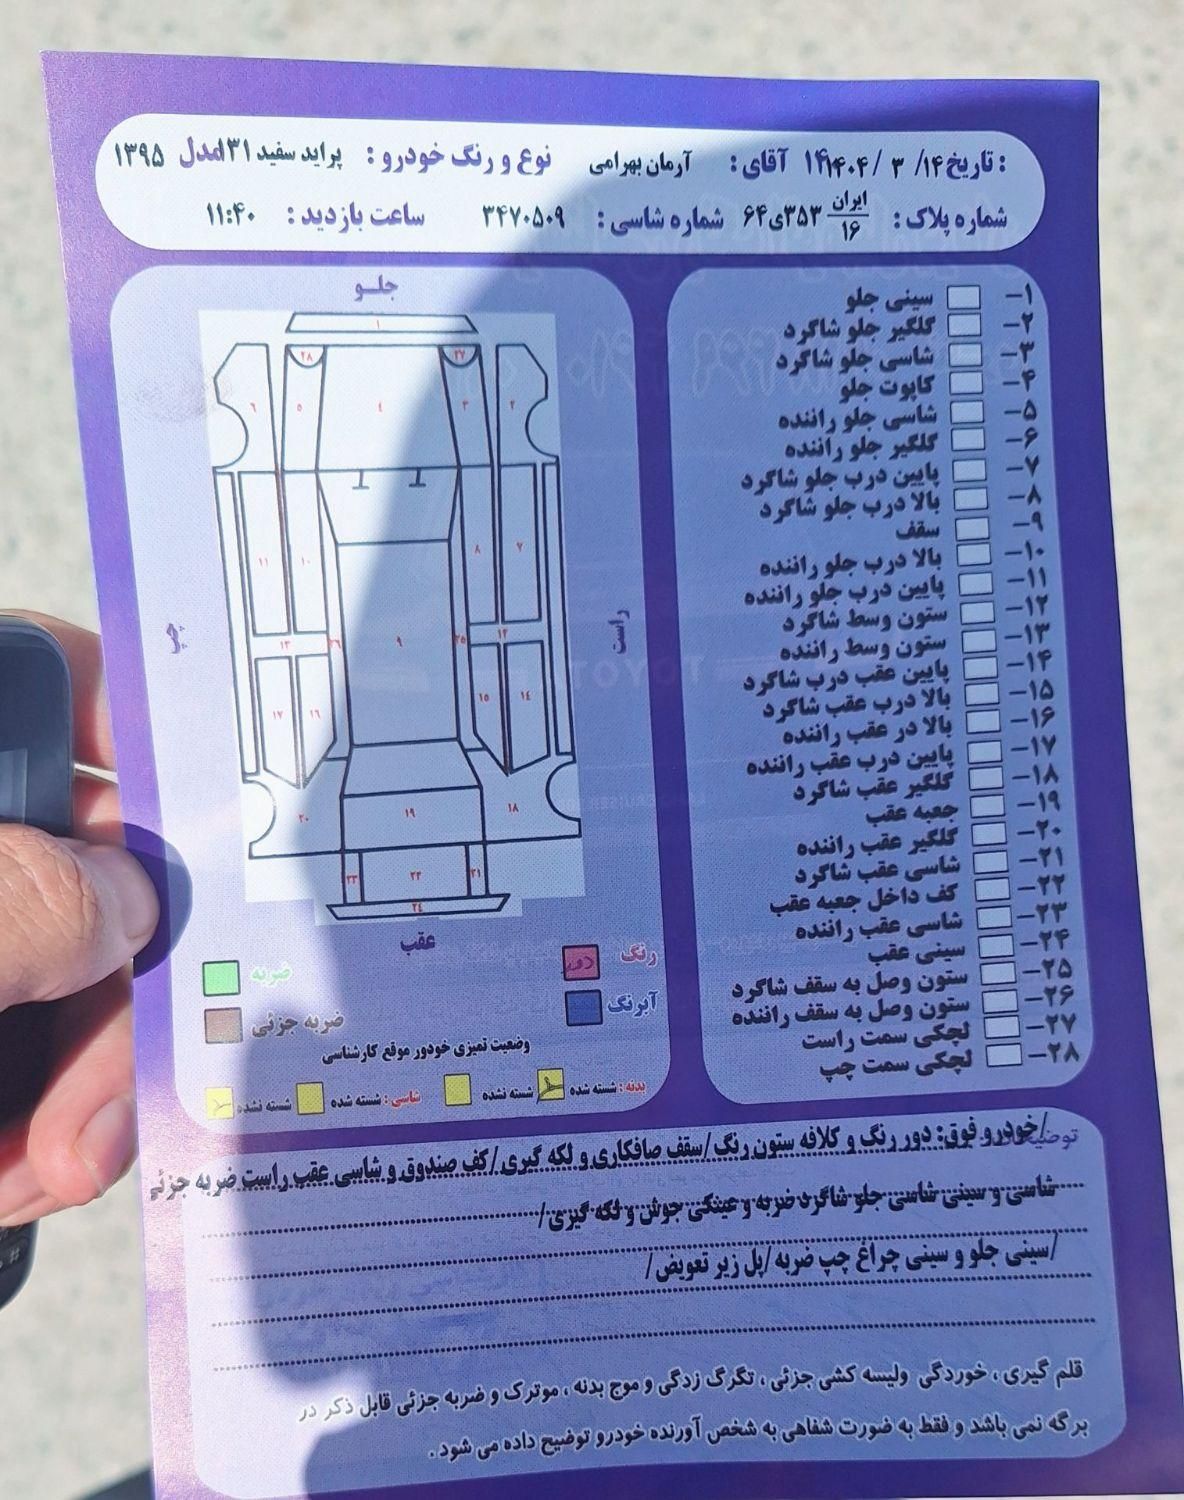 تاریخ: ۱۴/ ۳ /۱۴۰۴ ۱۴ آقای: آرمان بهرامی نوع و رنگ خودرو: پراید سفید ۱۳۱ مدل ۱۳۹۵
شماره پلاک: ایران ۱۶ ۳۵۳ی۶۴ شماره شاسی: ۳۴۷۰۵۰۹ ساعت بازدید: ۱۱:۴۰
۱- سینی جلو
۲- گلگیر جلو شاگرد
۳- شاسی جلو شاگرد
۴- کاپوت جلو
۵- شاسی جلو راننده
۶- گلگیر جلو راننده
۷- پایین درب جلو شاگرد
۸- بالا درب جلو شاگرد
۹- سقف
۱۰- بالا درب جلو راننده
۱۱- پایین درب جلو راننده
۱۲- ستون وسط شاگرد
۱۳- ستون وسط راننده
۱۴- پایین عقب درب شاگرد
۱۵- بالا درب عقب شاگرد
۱۶- بالا در عقب راننده
۱۷- پایین درب عقب راننده
۱۸- گلگیر عقب شاگرد
۱۹- جعبه عقب
۲۰- گلگیر عقب راننده
۲۱- شاسی عقب شاگرد
۲۲- کف داخل جعبه عقب
۲۳- شاسی عقب راننده
۲۴- سینی عقب
۲۵- ستون وصل به سقف شاگرد
۲۶- ستون وصل به سقف راننده
۲۷- لچکی سمت راست
۲۸- لچکی سمت چپ
جلـو
۱
۲۷ ۲۸
۲ ۳ ۴ ۵ ۶
۷ ۸ ۱۰ ۱۱
راست ۱۲ ۲۵ ۹ ۲۶ ۱۳ چپ
۱۴ ۱۵ ۱۶ ۱۷
۱۸ ۱۹ ۲۰
۲۱ ۲۲ ۲۳
۲۴
عقب
رنگ دور ضربه
آبرنگ ضربه جزئی
وضعیت تمیزی خودرور موقع کارشناسی
بدنه: شسته شده شسته نشده شاسی: شسته شده شسته نشده
/خودرو فوق: دور رنگ و کلافه ستون رنگ/سقف صافکاری و لکه گیری/کف صندوق و شاسی عقب راست ضربه جزئی
شاسی و سینی شاسی جلو شاگرد ضربه و عینکی جوش و لکه گیری/
/سینی جلو و سینی چراغ چپ ضربه/پل زیر تعویض/
قلم گیری، خوردگی ولیسه کشی جزئی، تگرگ زدگی و موج بدنه، موترک و ضربه جزئی قابل ذکر در
برگه نمی باشد و فقط به صورت شفاهی به شخص آورنده خودرو توضیح داده می شود.